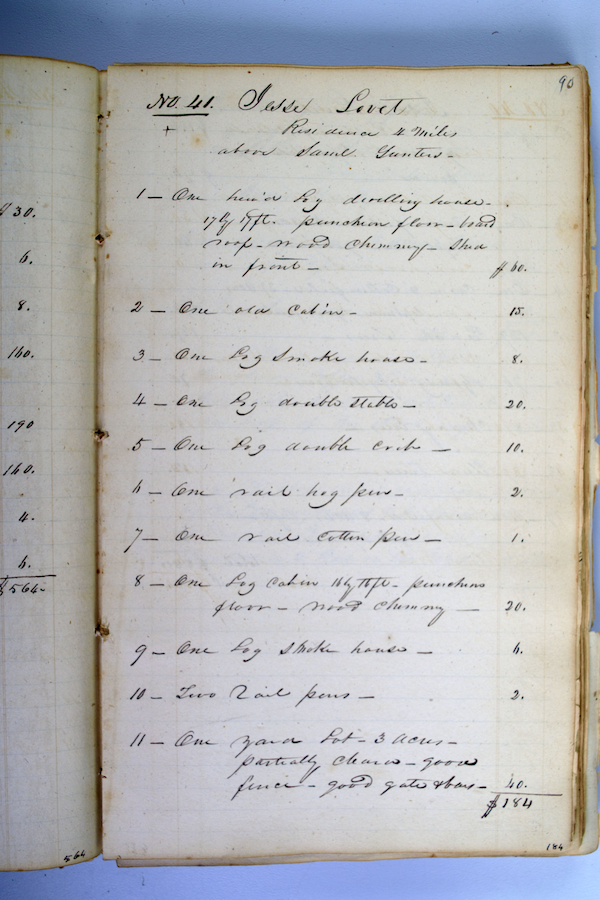 $ 30.
6.
8.
160.
190
160.
4.
6.
$ 564-
564
90
No. 41. Jesse Lovet
+ Residence 4 Miles
above Saml Gunters -
1 - One hew'd Log dwelling house -
17 by 17 ft. puncheon floor - board
roof - wood chimney - shed
in front - $ 60.
2 - One old cabin - 15.
3 - One Log Smoke house - 8.
4 - One Log double stable - 20.
5 - One Log double crib - 10.
6 - One rail hog pen - 2.
7 - One rail cotton pen - 1.
8 - One Log cabin 16 by 16 ft - puncheon
floor - wood chimney - 20.
9 - One Log Smoke house - 6.
10 - Two Rail pens - 2.
11 - One yard Lot - 3 acres -
partially cleard - good
fence - good gate & bars - 40.
$ 184
184